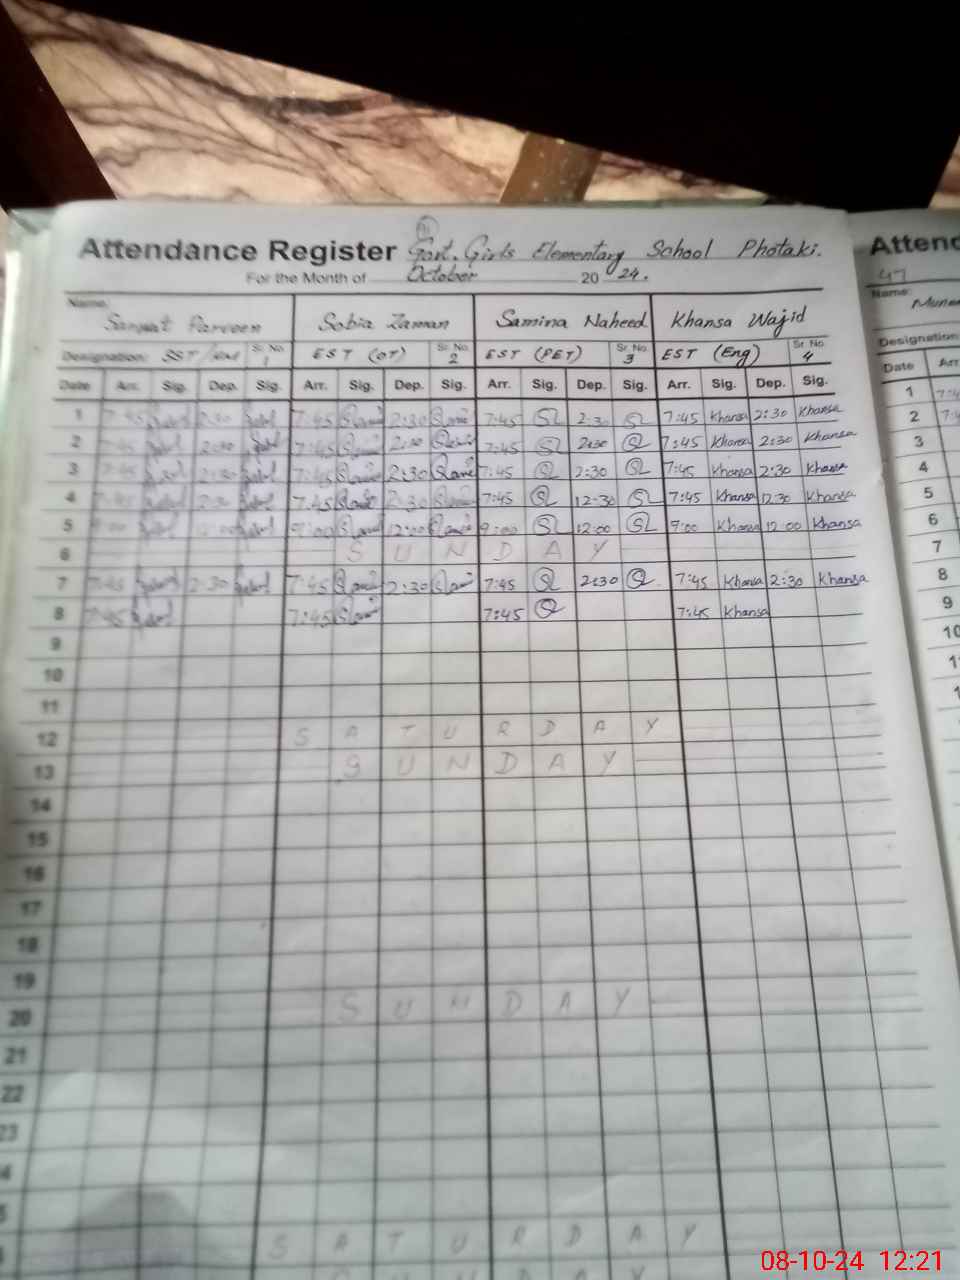 Attendance Register Govt. Girls Elementary School Photaki.
For the Month of October 2024.
Name:
Parveen Sobia Zaman Samina Naheed Khansa Wajid
Designation: SST Sr. No. 1 EST (OT) Sr. No. 2 EST (PET) Sr. No. 3 EST (Eng) Sr. No. 4
Date Arr. Sig. Dep. Sig. Arr. Sig. Dep. Sig. Arr. Sig. Dep. Sig. Arr. Sig. Dep. Sig.
1 7:45 2:30 7:45 2:30 7:45 2:30 7:45 Khansa 2:30 Khansa
2 7:45 2:30 7:45 2:30 7:45 2:30 7:45 Khansa 2:30 Khansa
3 7:45 2:30 7:45 2:30 7:45 2:30 7:45 Khansa 2:30 Khansa
4 7:45 7:45 7:45 12:30 7:45 Khansa 12:30 Khansa
5 9:00 12:00 9:00 12:00 9:00 Khansa 12:00 Khansa
6 SUNDAY
7 7:45 2:30 7:45 2:30 7:45 2:30 7:45 Khansa 2:30 Khansa
8 7:45 7:45 7:45 7:45 Khansa
9
10
11
12 SATURDAY
13 SUNDAY
14
15
16
17
18
19
20 SUNDAY
21
22
23
SATURDAY
Attend
47
Name:
Designation:
Date Arr
1
2
3
4
5
6
7
8
9
10
08-10-24 12:21